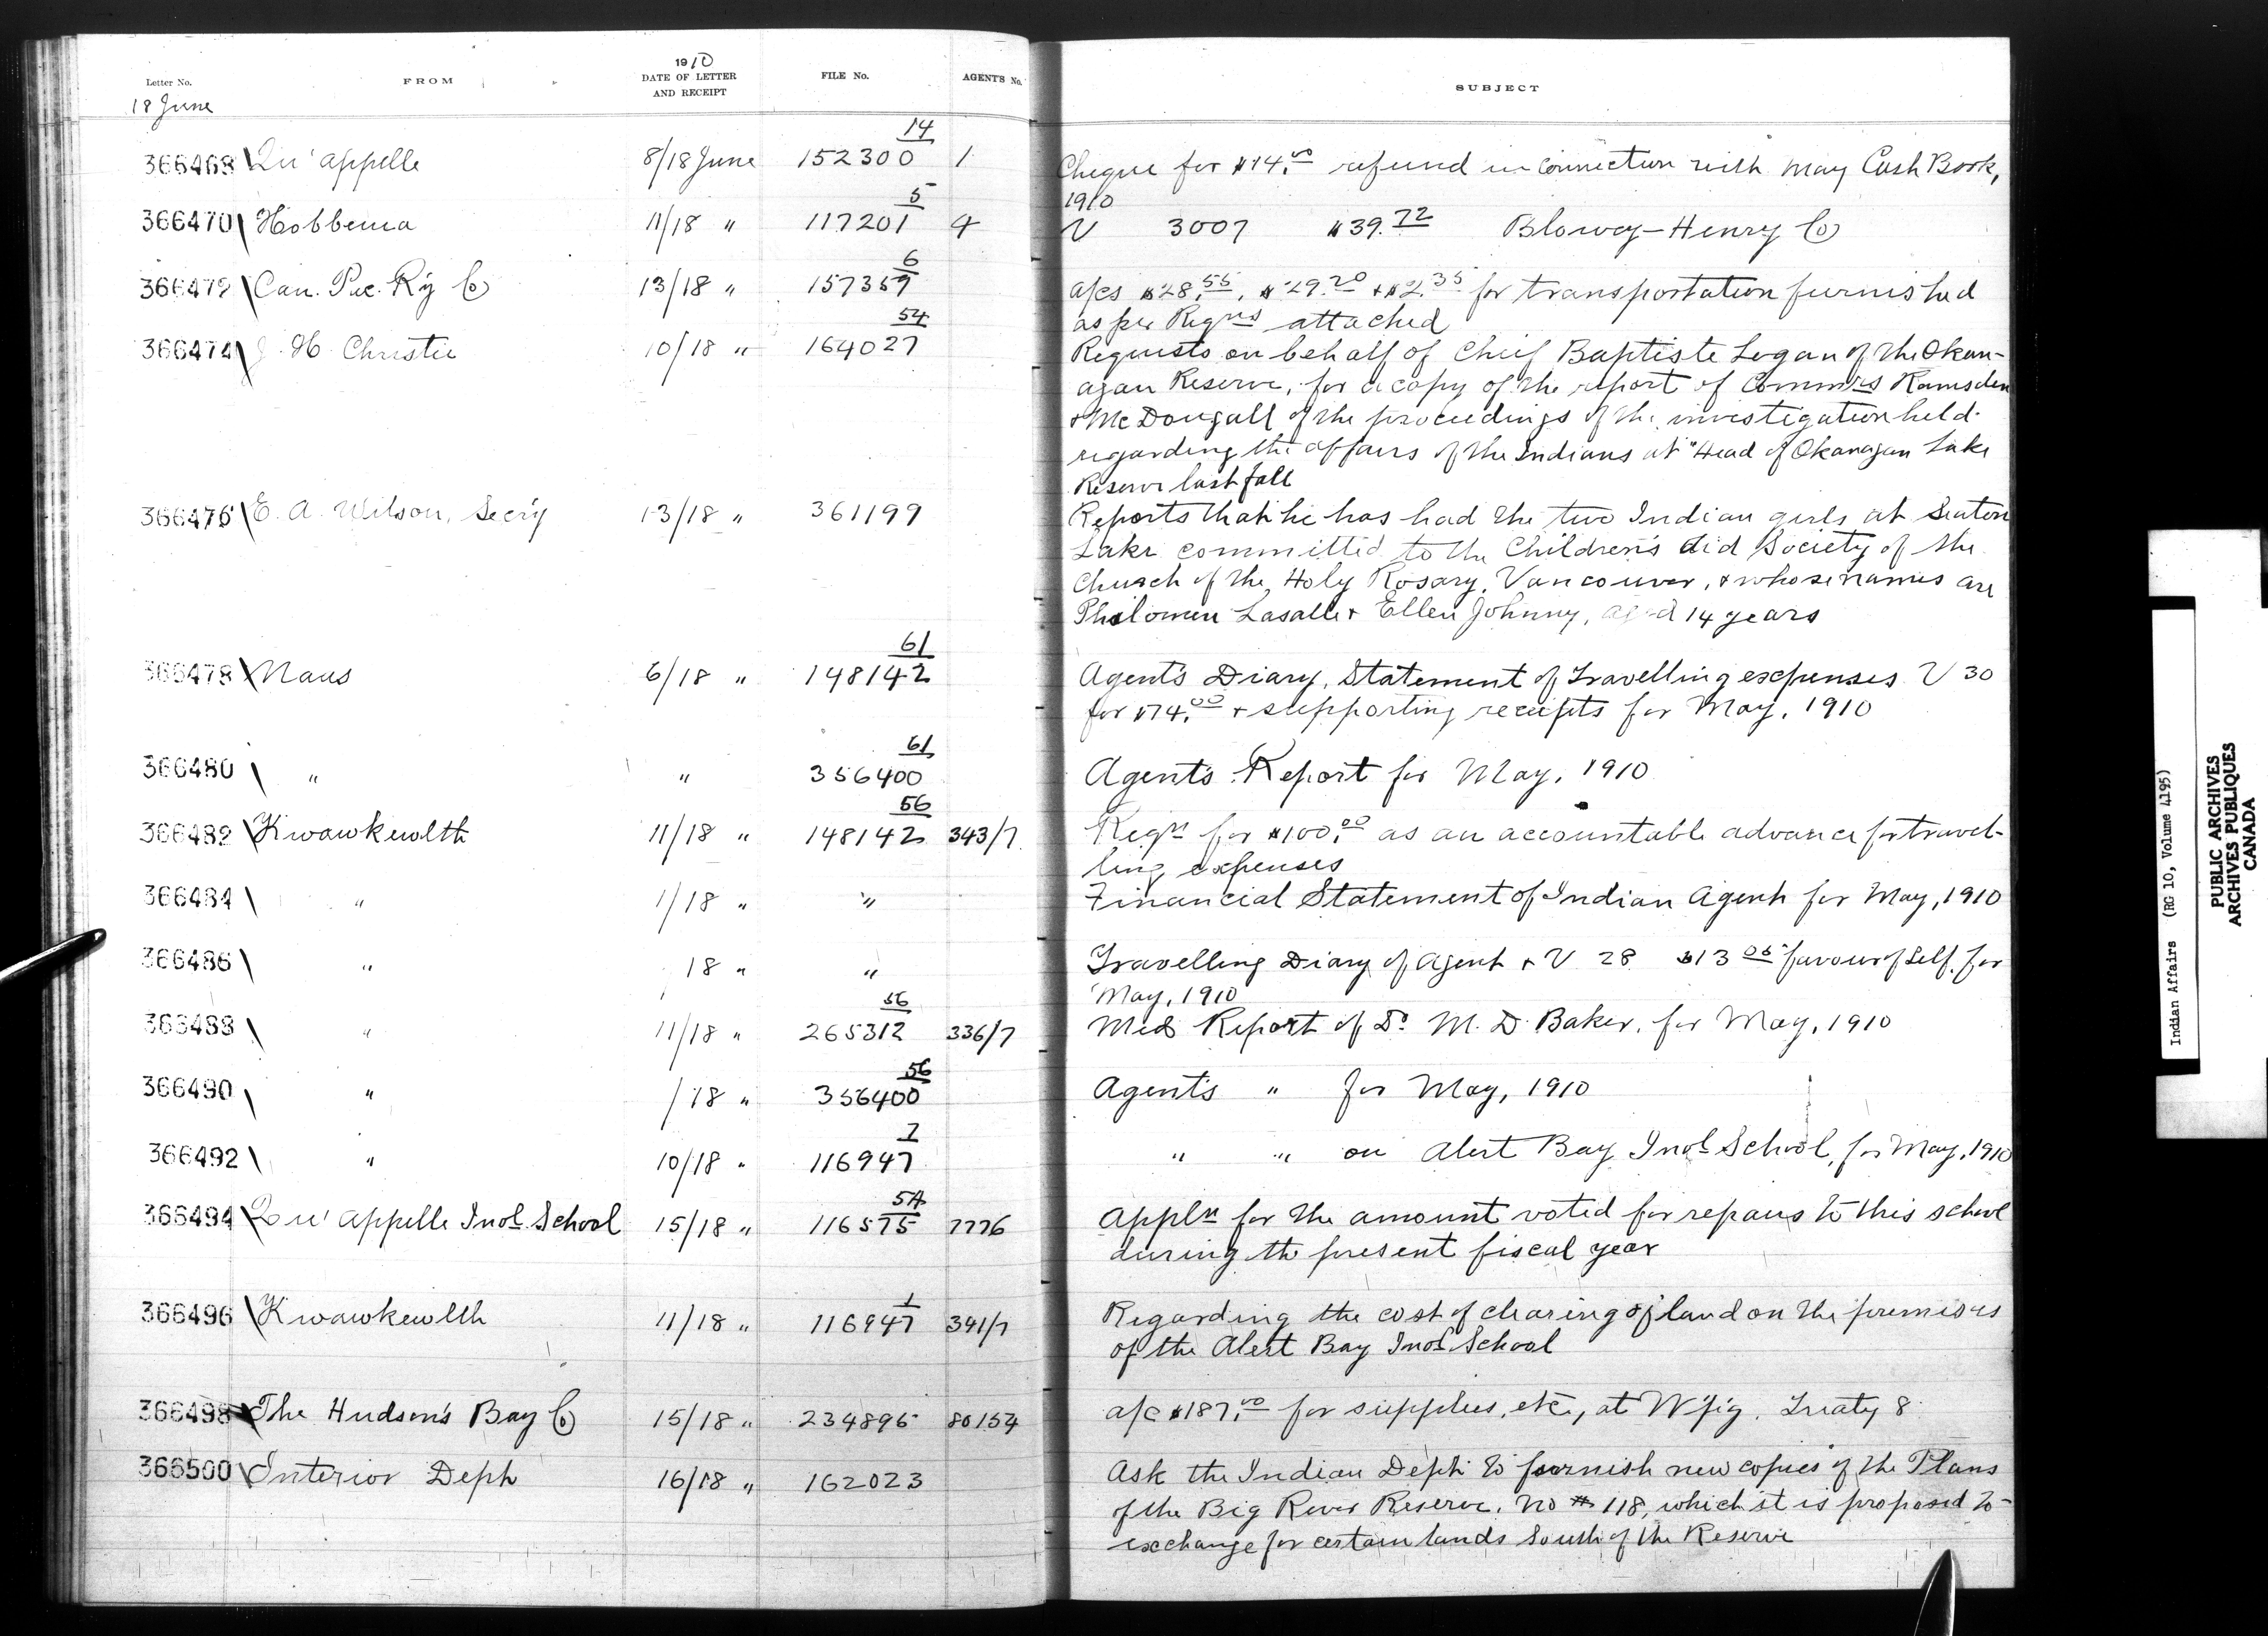 Letter No.
FROM
1910
DATE OF LETTER
AND RECEIPT
FILE No.
AGENTS No.
SUBJECT
18 June
366468 Qu'appelle 8/18 June 152300/14 1 Cheque for $14.00 refund in connection with May Cash Book,
1910
366470 Hobbema 11/18 " 117201/5 4 V 3007 $39.72 Blowey-Henry Co
366472 Can. Pac. Ry Co 13/18 " 157359/6 a/cs $28.55, $29.20 + $2.35 for transportation furnished
as per Reqns attached
366474 J. H. Christie 10/18 " 164027/54 Requests on behalf of Chief Baptiste Logan of the Okan-
agan Reserve, for a copy of the report of Commrs Ramsden
+ McDougall of the proceedings of the investigation held
regarding the affairs of the Indians at "Head of Okanagan Lake
Reserve last fall
366476 E. A. Wilson, Secry 13/18 " 361199 Reports that he has had the two Indian girls at Seaton
Lake committed to the Children's Aid Society of the
Church of the Holy Rosary, Vancouver, + whose names are
Philomene Lasalle + Ellen Johnny, aged 14 years
366478 Naas 6/18 " 148142/61 Agent's Diary, Statement of Travelling expenses V 30
for $74.00 + supporting receipts for May, 1910
366480 " " 356400/61 Agent's Report for May, 1910
366482 Kwawkewlth 11/18 " 148142/56 343/7 Reqn for $100.00 as an accountable advance for travel-
ling expenses
366484 " 1/18 " " Financial Statement of Indian Agent for May, 1910
366486 " 18 " " Travelling Diary of Agent + V 28 $13.05 favour of Self, for
May, 1910
366488 " 11/18 " 265312/56 336/7 Med Report of Dr M. D. Baker, for May, 1910
366490 " /18 " 356400/56 Agent's " for May, 1910
366492 " 10/18 " 116947/1 " " on Alert Bay Indl School, for May, 1910
366494 Qu'appelle Indl School 15/18 " 116575/5A 7776 Appln for the amount voted for repairs to this school
during the present fiscal year
366496 Kwawkewlth 11/18 " 116947/1 341/7 Regarding the cost of clearing of land on the premises
of the Alert Bay Indl School
366498 The Hudson's Bay Co 15/18 " 234895 80154 a/c $187.00 for supplies, etc, at Wpg. Treaty 8
366500 Interior Dept 16/18 " 162023 Ask the Indian Dept to furnish new copies of the Plans
of the Big River Reserve, No # 118, which it is proposed to
exchange for certain lands South of the Reserve
Indian Affairs (RG 10, Volume 4195)
PUBLIC ARCHIVES
ARCHIVES PUBLIQUES
CANADA